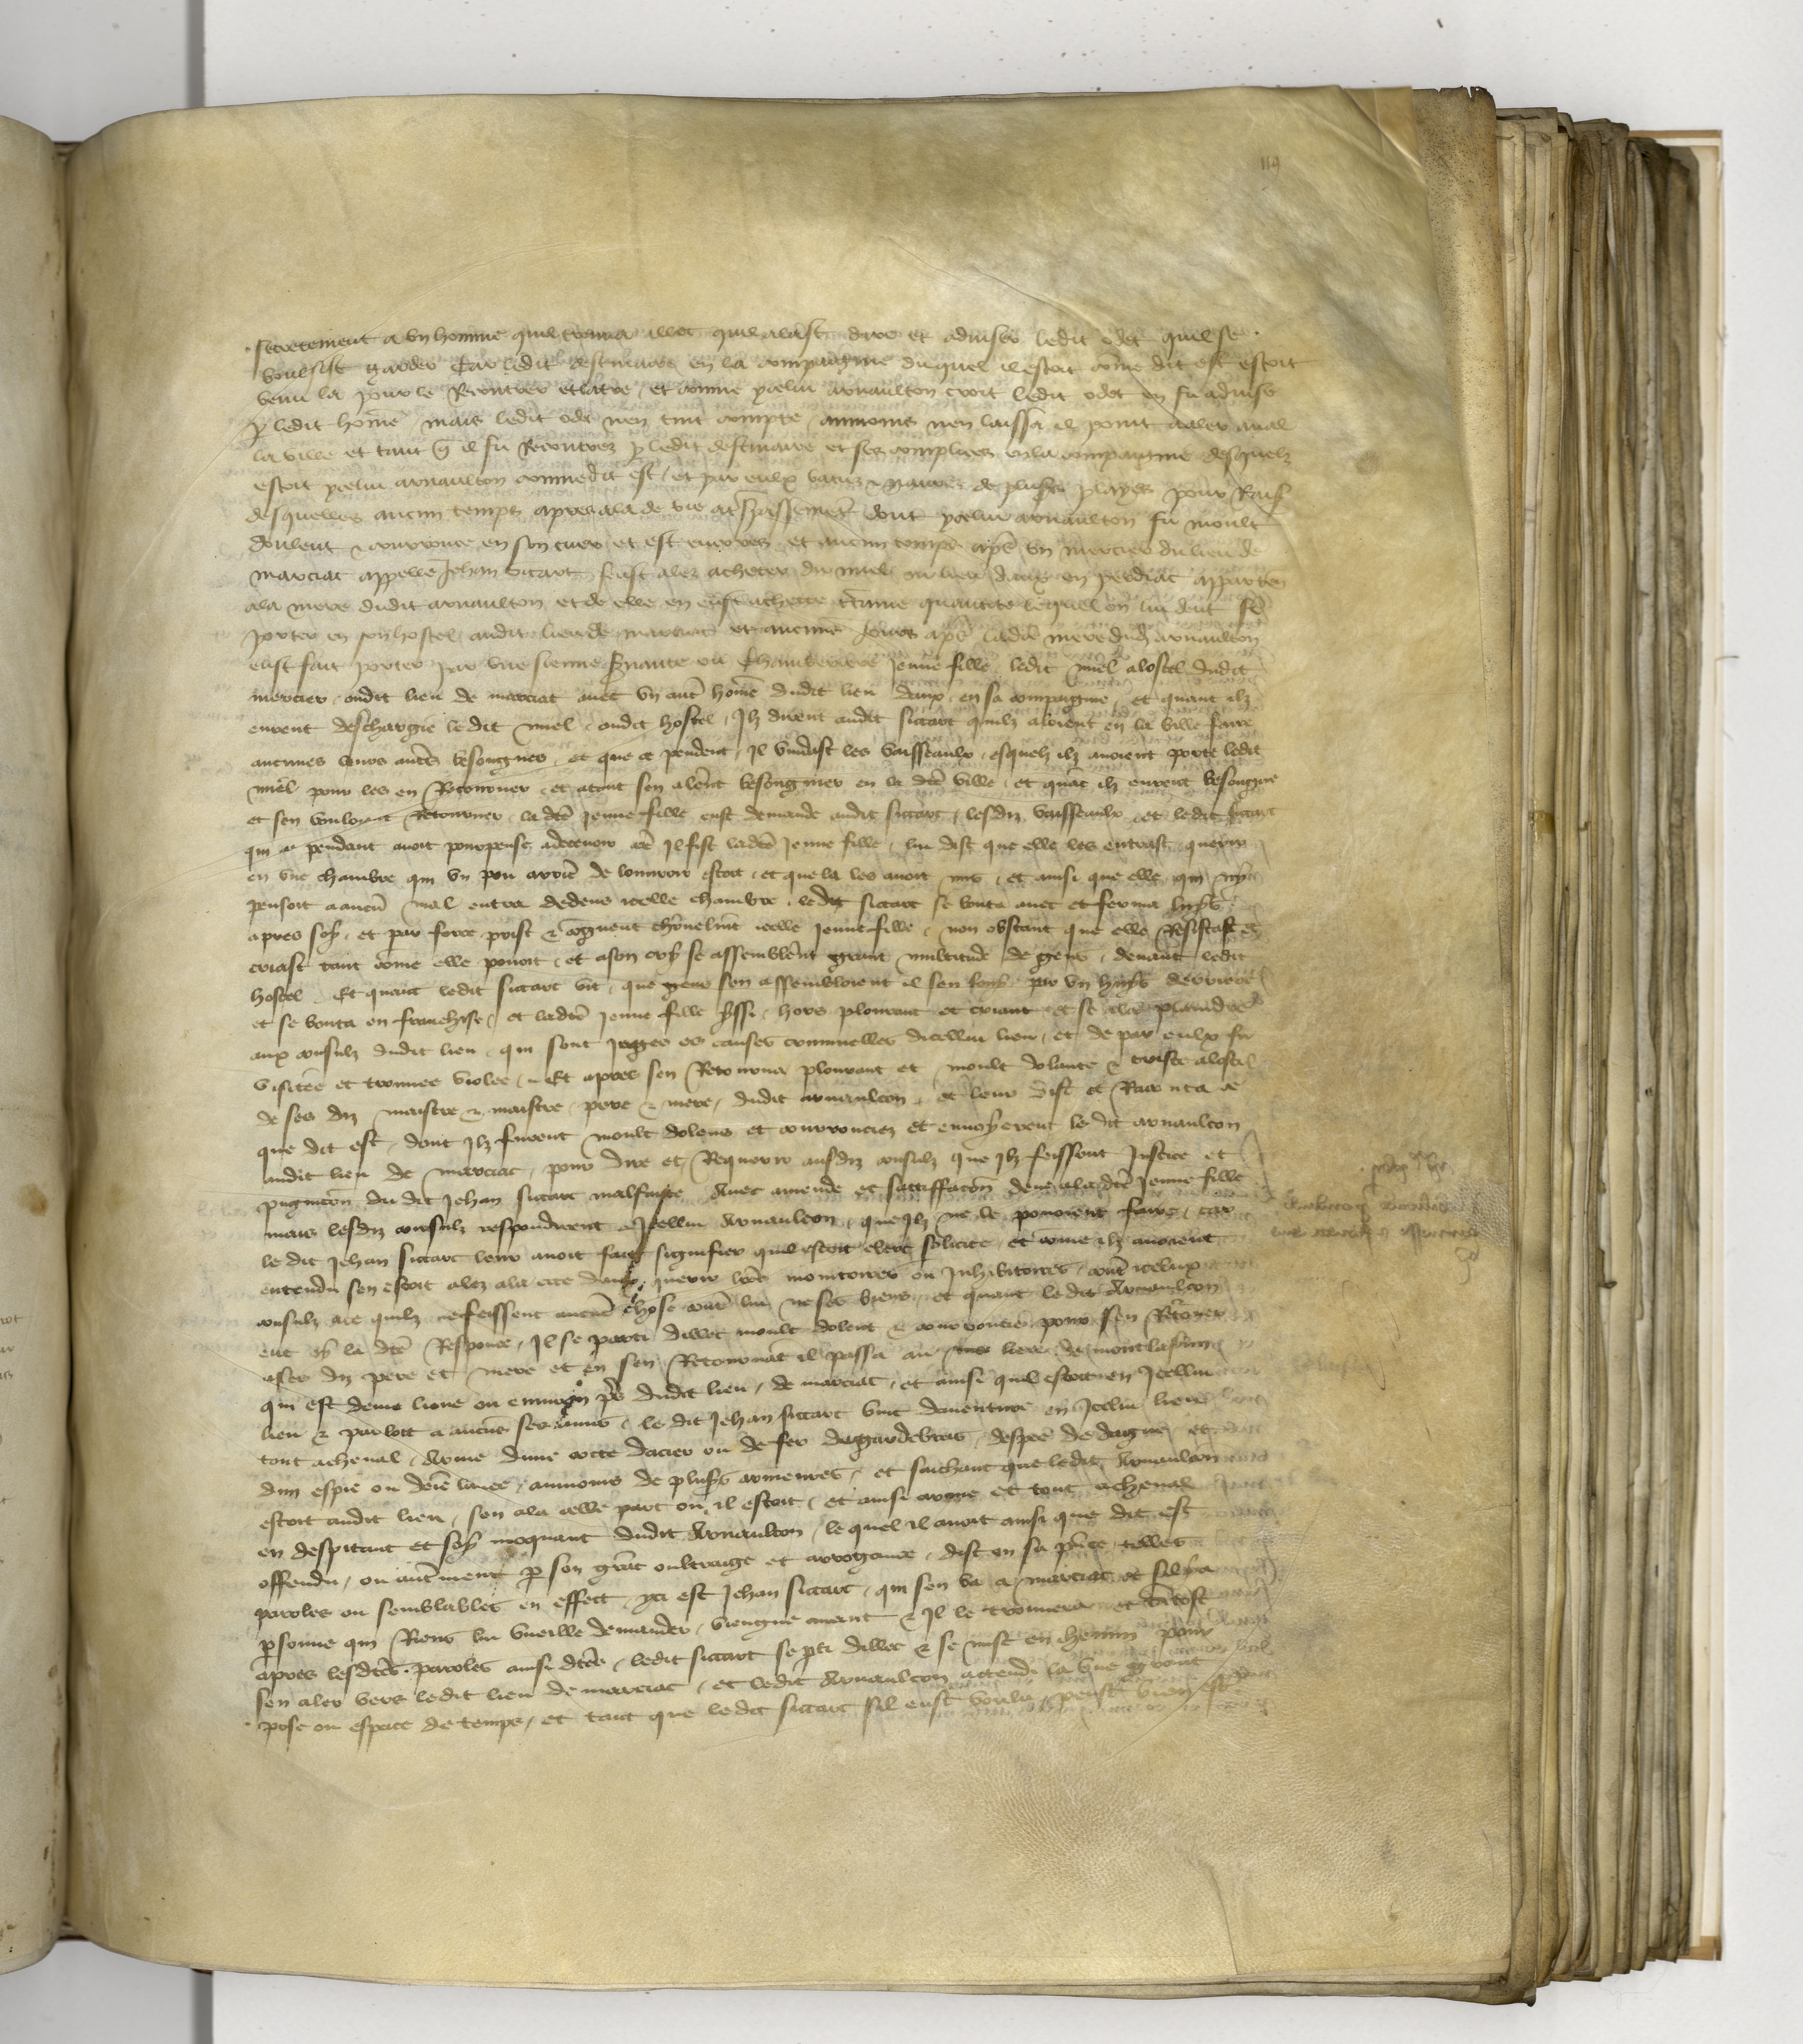 119
secretement a un homme quil trouva illec quil alast dire et adviser ledit odet quil se
voulsist garder Car ledit destmaire en la compaignie duquel il estoit cõme dit est estoit
venu la pour le Rencontrer et batre et comme ycellui arnaulton croit ledit odet en fu advisé
ledit home mais ledit odet nen tint compte ainmoins nen laissa il point aaler aval
la ville et tant q̃ il fu Rencontrez p ledit destmaire et ses complices en la compaignie desquelz
estoit ycellui arnaulton comme dit est et par eulx batuz & navrez de plus̃ playes pour Rais̃
desquelles aucun temps apres ala de vie a trespassemẽt dont ycellui arnaulton fu moult
doulent & courroucé en son cuer et est encores et aucun temps apr̃s un mercier du lieu de
marciac appellé Jehan sicart feust alez acheter du miel au lieu daux en perdiac apparten
ala mere dudit arnaulton et de elle en eust acheté c̃taine quantité lequel on lui deut f̃e
porter en son hostel audit lieu de marciac et aucuns jours apr̃s ladc̃e mere dudit arnaulton
eust fait porter par une sienne s̃vante ou chamberiere jeune fille ledit miel a lostel dudit
mercier oudit lieu de marciac avec un aut̃ homẽ dudit lieu daux en sa compaignie et quant ilz
eurent deschargié le dit miel oudit hostel Ilz dirent audit sicart quilz aloient en la ville faire
aucunes leurs aut̃s besongnes et que ce pendent il vuidast les vaisseaulx esquelz ilz avoient porté ledit
miel pour les en Retourner et atant sen alerẽt besongnier en la dc̃e ville et quãt ilz eurent besongnié
et sen vouloient Retourner ladc̃e jeune fille eust demandé audit sicart lesdiz vaisseaulx et ledit sicart
qui ce pendant avoit pourpensé adecevoir lad Il fist ladc̃e jeune fille lui dist que elle les entrast querir
en une chambre qui un pou arrier̃ de louvroir estoit et que la les avoit mis et ainsi que elle qui ny
pensoit a aucũ mal entra dedens icelle chambre ledit sicart se bouta avec et ferma luys
apres soy et par force prist & cogneut charnelmt̃ icelle jeune fille non obstant que elle Resistast et
criast tant cõme elle povoit et a son cry se assemblerẽt grant multitude de gens devant ledit
hostel Et quant ledit sicart vit que gens sen assembloient il sen fouy par un huys derriere
et se bouta en franchise et ladc̃e jeune fille yssi hors plourant et criant et se ala plaindre
aux consulz dudit lieu qui sont juges es causes criminelles dicellui lieu et de par eulx fu
visitée et trouvee violee Et apres sen Retourna plourant et moult dolante & triste a lostel
de ses diz maistre & maistre pere & mere dudit arnaulton et leur dist et Raconta ce
que dit est dont Ilz furent moult dolens et courrouciez et envoyerent le dit arnaulton
audit lieu de marciac pour dire et Requerir ausdiz consulz que Ilz feissent Justice et
pugnicion du dit Jehan sicart malfaite avec amende et satisfacõn deue ala dc̃e jeune fille
mais lesdiz consulz respondirent a Icellui Arnaulton que Ilz ne le povoient faire car
le dit Jehan sicart leur avoit fait signifier quil estoit clerc solicite et cõme ilz avoient
entendu sen estoit alez ala cite daux querir lr̃es monitoires ou Inhibitoires cont̃ iceulx
consulz ace quilz ne feissent aucũe chose cont̃ lui ne ses biens et quant le dit Arnaulton
eut oy la dc̃e Response Il se parti dillec moult dolent & courroucié pour sen Retorner
a ses diz pere et mere et en sen Retournãt il passa au lieu de montlasun
qui est demie lieue ou environ pr̃s dudit lieu de marciac et ainsi quil estoit en Icellui
lieu & parloit a aucũs ses amis le dit Jehan sicart vint daventure en Icelui lieu
tout acheval Armé dune cotte dacier ou de fer de gardebras despée de dague et
dun espié ou demie lance ainmoins de plus̃s armeures et sachant que ledit Arnaulton
estoit audit lieu sen ala celle part ou il estoit et ainsi armé et tout acheval
en despitant et soy moquant dudit Arnaulton le quel il avoit ainsi que dit est
offendu ou aut̃ment p son grãt oultraige et arrogance dist en sa p̃nce telles
paroles ou semblables en effect ycy est Jehan sicart qui sen va a marciac et sil y a
p̃sonne qui Riens lui vueille demander viengne avant & Il le trouvera et tãtost
apres lesdc̃es paroles ainsi dc̃es ledit sicart se p̃ti dillec & se mist en chemin pour
sen aler vers ledit lieu de marciac et ledit Arnaulton attendi la une grant
pose ou espace de temps et tant que ledit sicart sil eust voulu peust bien est̃